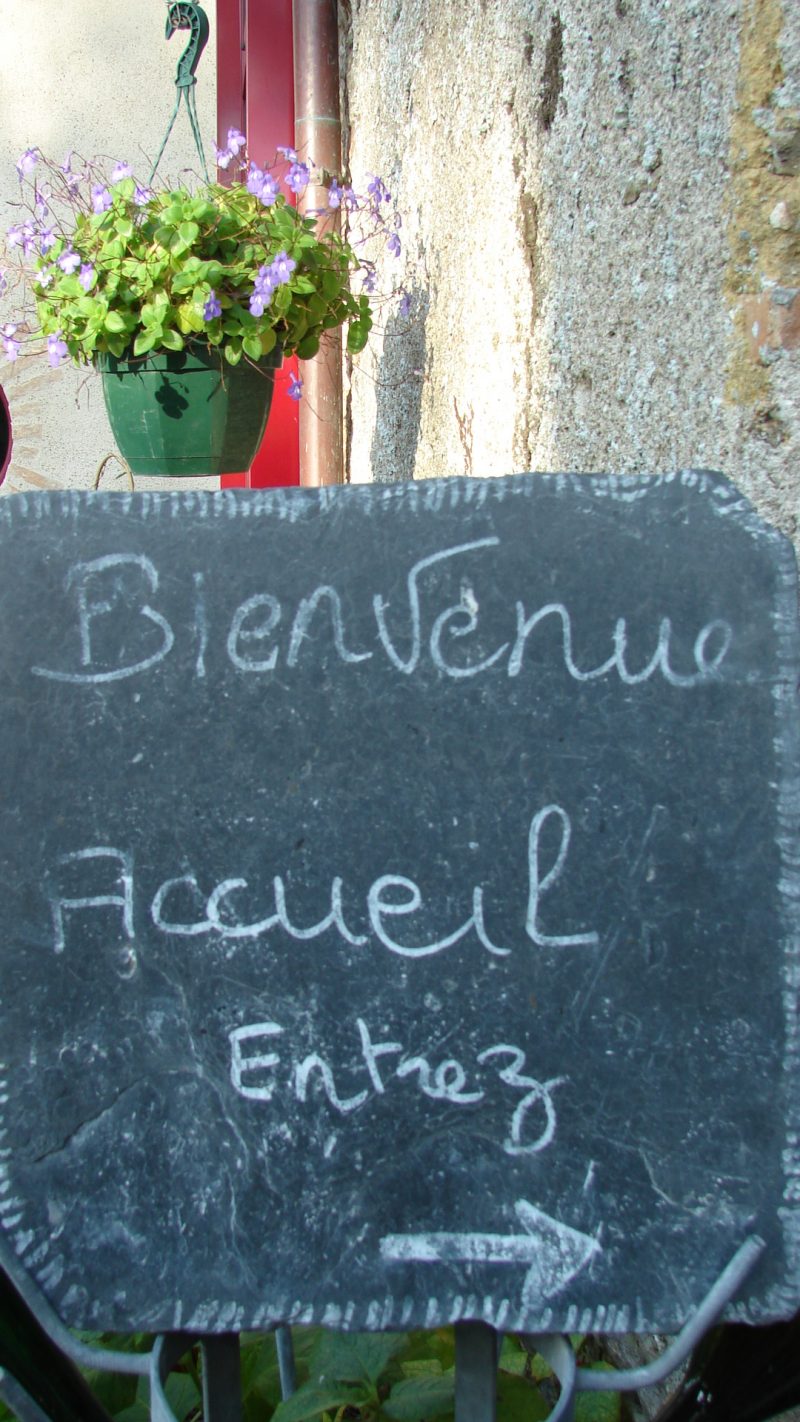 Bienvenue
Accueil
Entrez